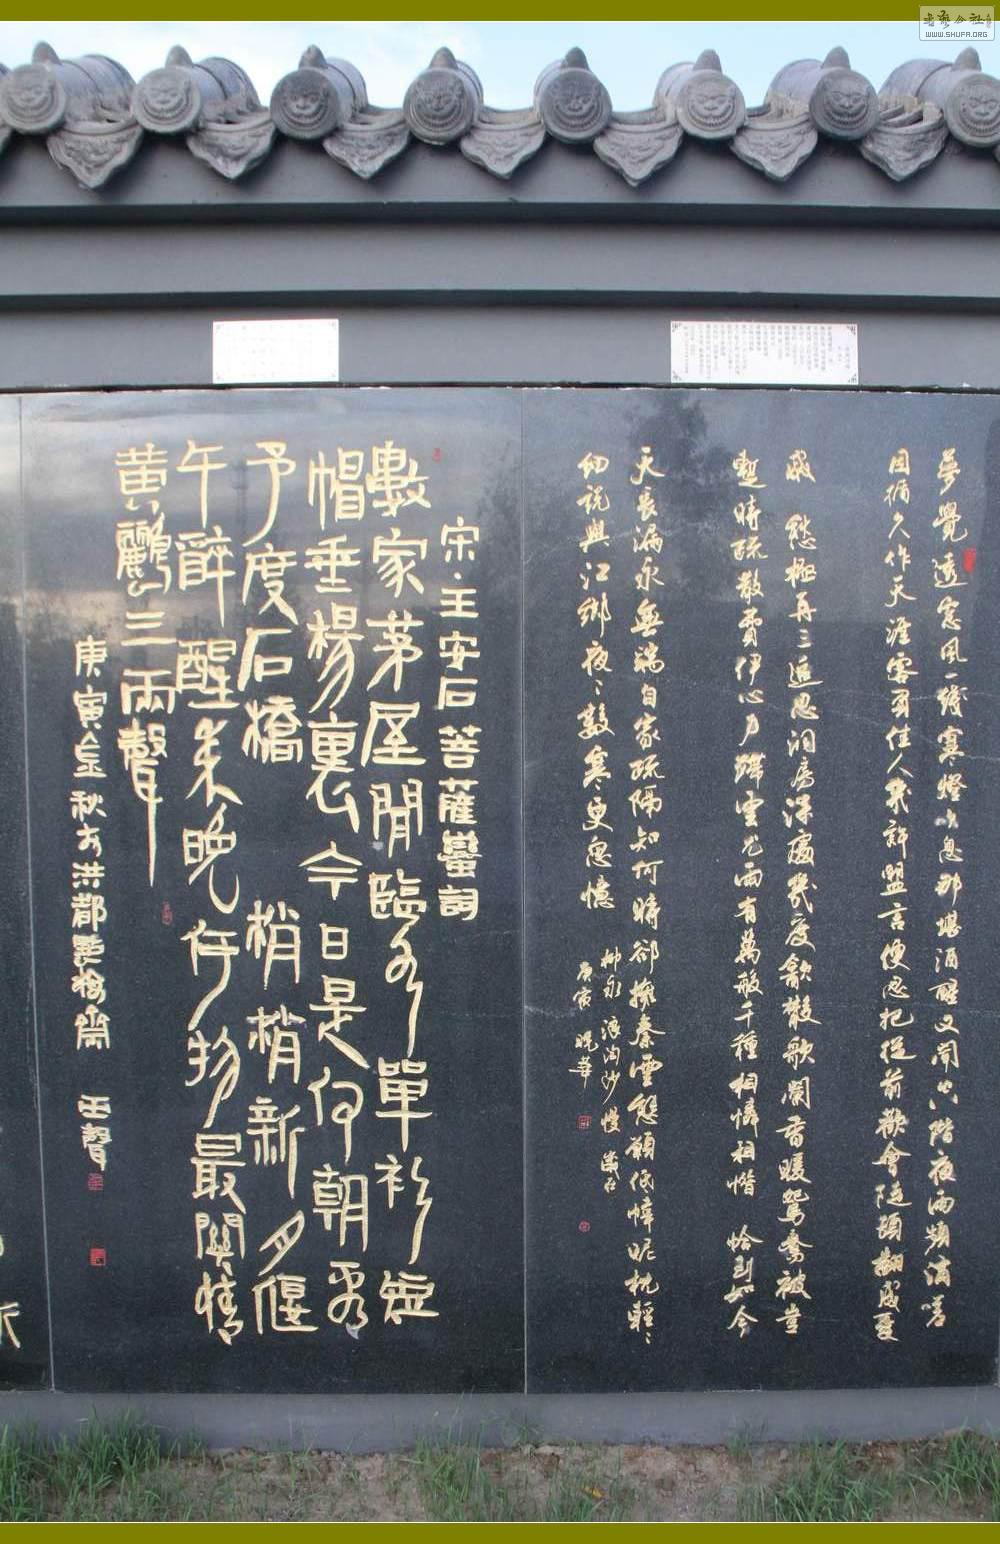 夢覺透窗風一綫寒燈吹息那堪酒醒又聞空階夜雨頻滴嗟
因循久作天涯客負佳人幾許盟言便忍把從前歡會陡頓翻成憂
戚 愁極再三追思洞房深處幾度飲散歌闌香暖鴛鴦被豈
暫時疏散費伊心力殢雲尤雨有萬般千種相憐相惜 恰到如今
天長漏永無端自家疏隔知何時卻擁秦雲態願低幃昵枕輕々
細說與江鄉夜々數寒更思憶
柳永 浪淘沙慢 歲在
庚寅
宋·王安石菩薩蠻詞
數家茅屋閒臨水單衫短
帽垂楊裏今日是何朝看
予度石橋 梢梢新月偃
午醉醒來晚何物最關情
黃鸝三兩聲
庚寅金秋於洪都
WWW.SHUFA.ORG